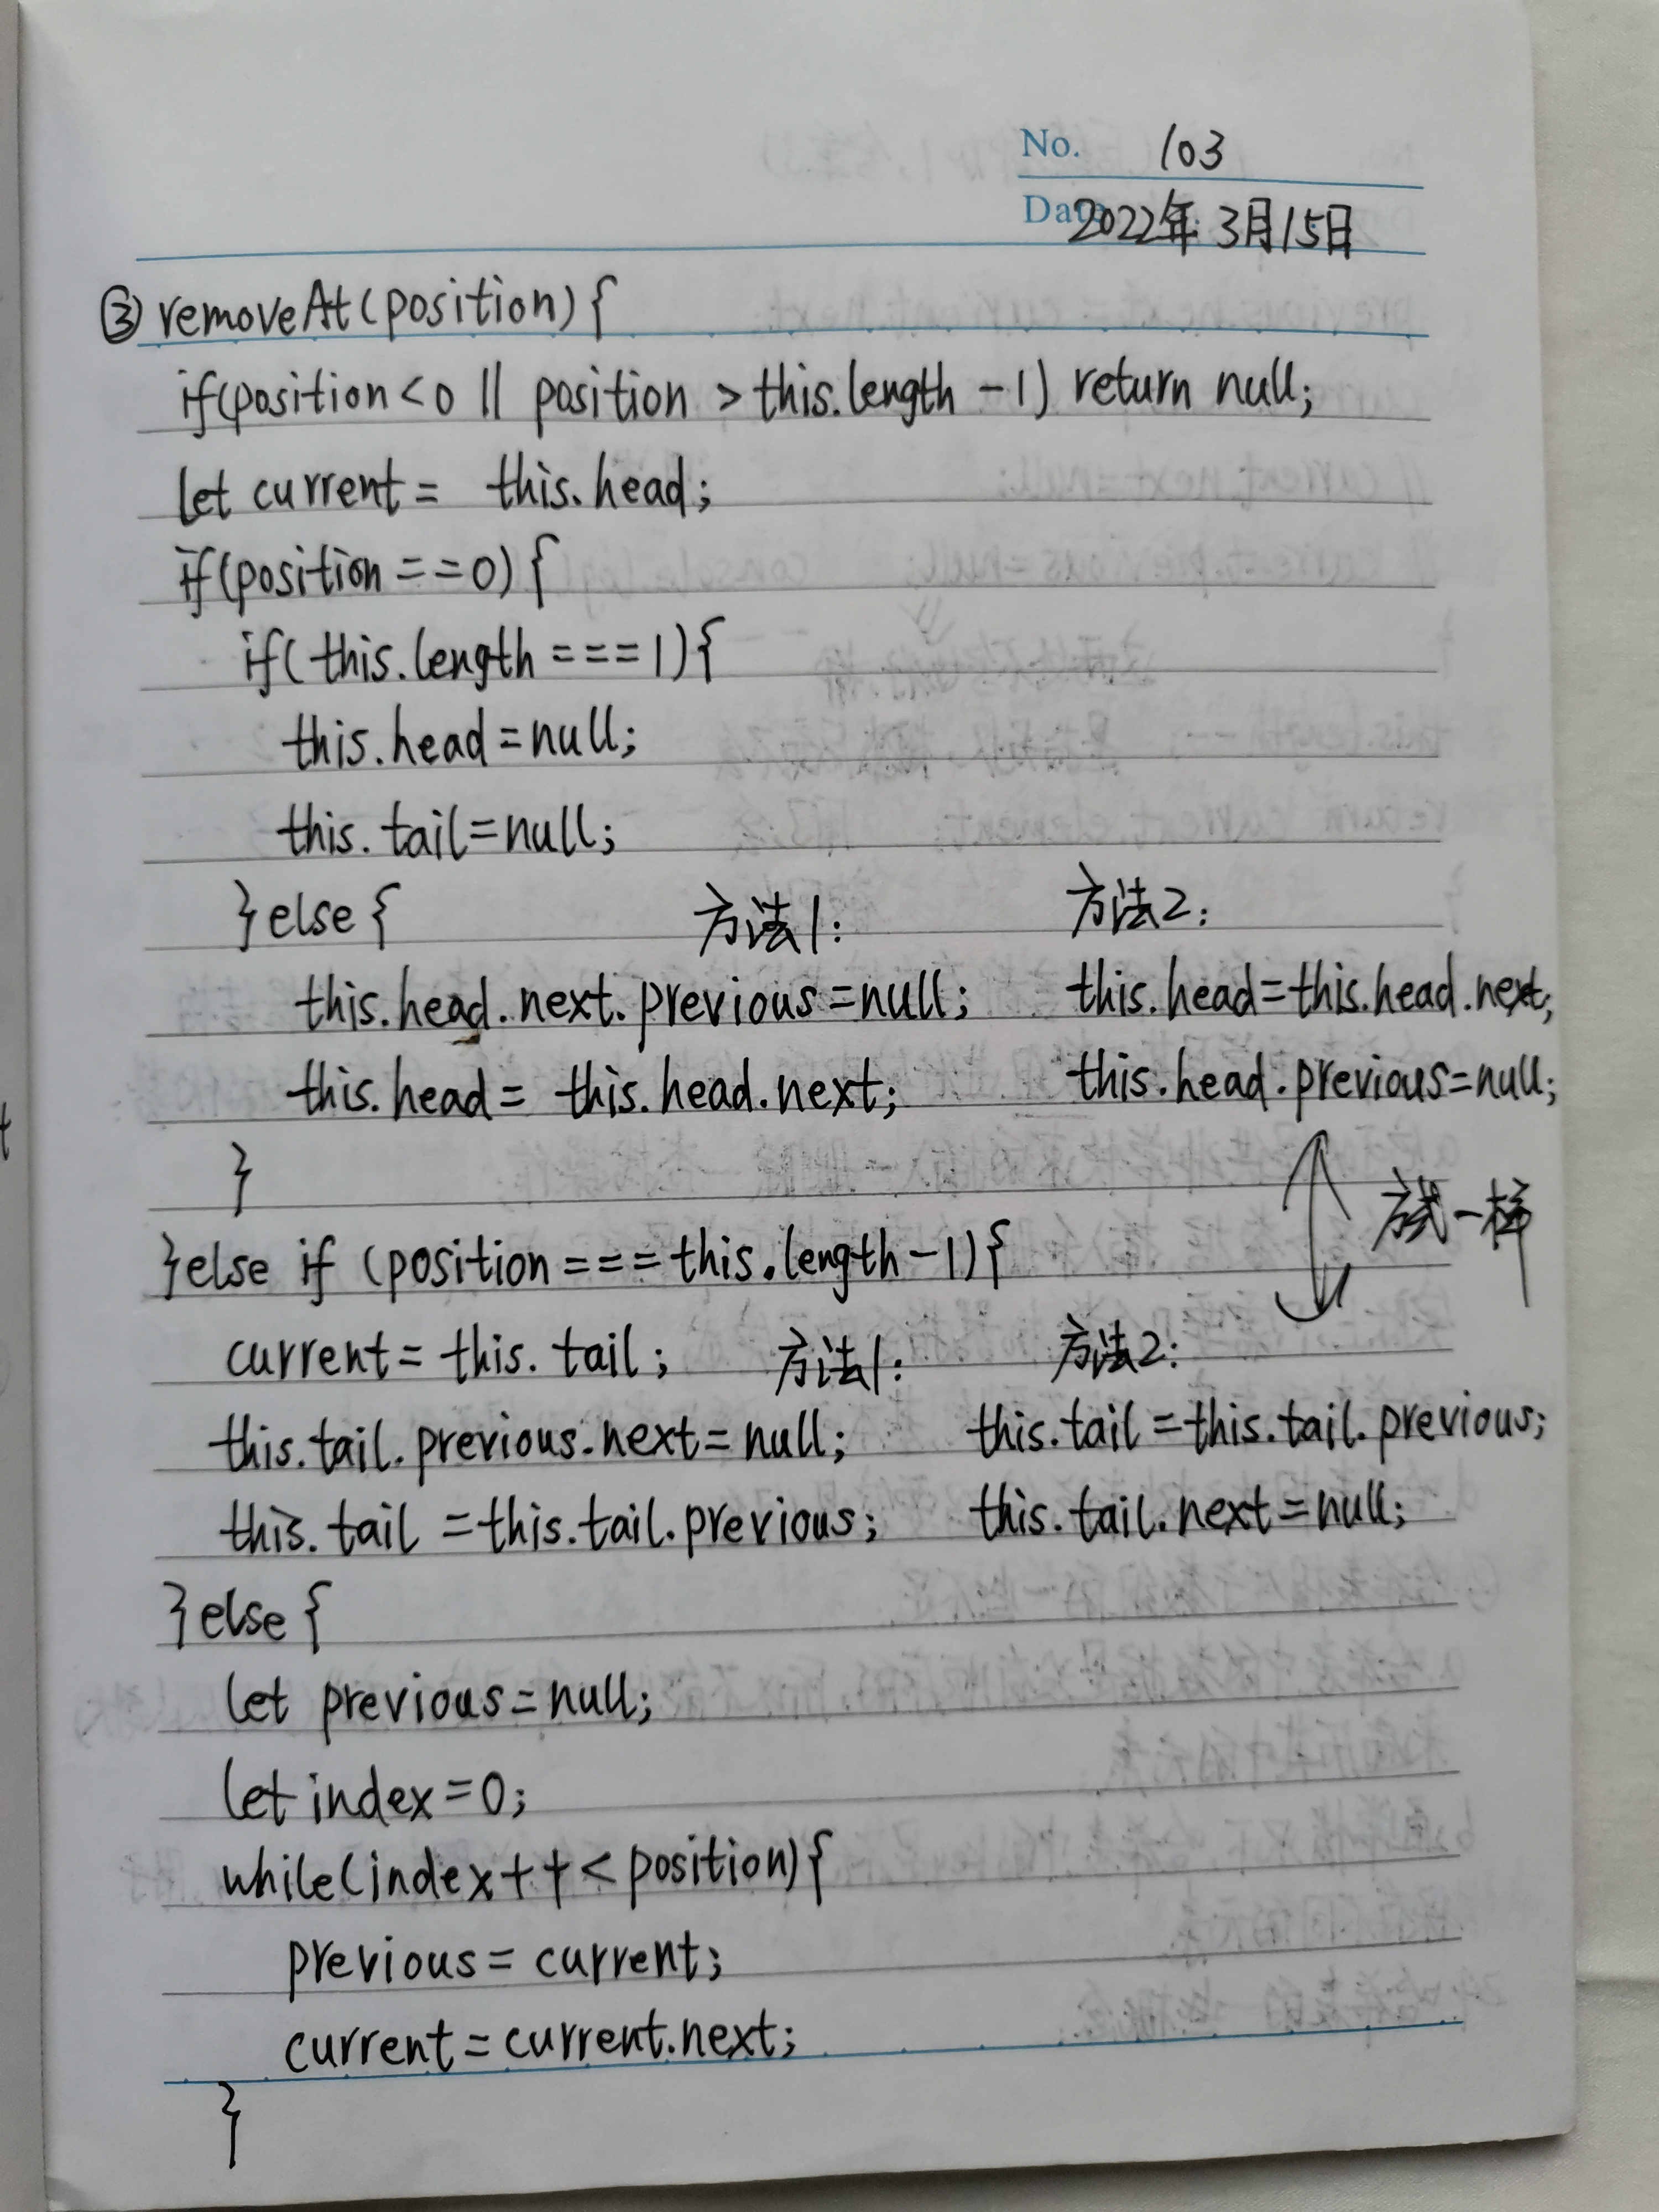 No. 103
Date 2022年3月15日
③ removeAt(position){
if(position<0 || position >this.length -1) return null;
let current = this.head;
if(position ==0){
if(this.length ===1){
this.head=null;
this.tail=null;
}else{ 方法1: 方法2:
this.head.next.previous=null; this.head=this.head.next;
this.head= this.head.next; this.head.previous=null;
}
方式一样
}else if (position ===this.length-1){
current=this.tail; 方法1: 方法2:
this.tail.previous.next=null; this.tail=this.tail.previous;
this.tail =this.tail.previous; this.tail.next=null;
}else{
let previous=null;
let index=0;
while(index++<position){
previous=current;
current=current.next;
}